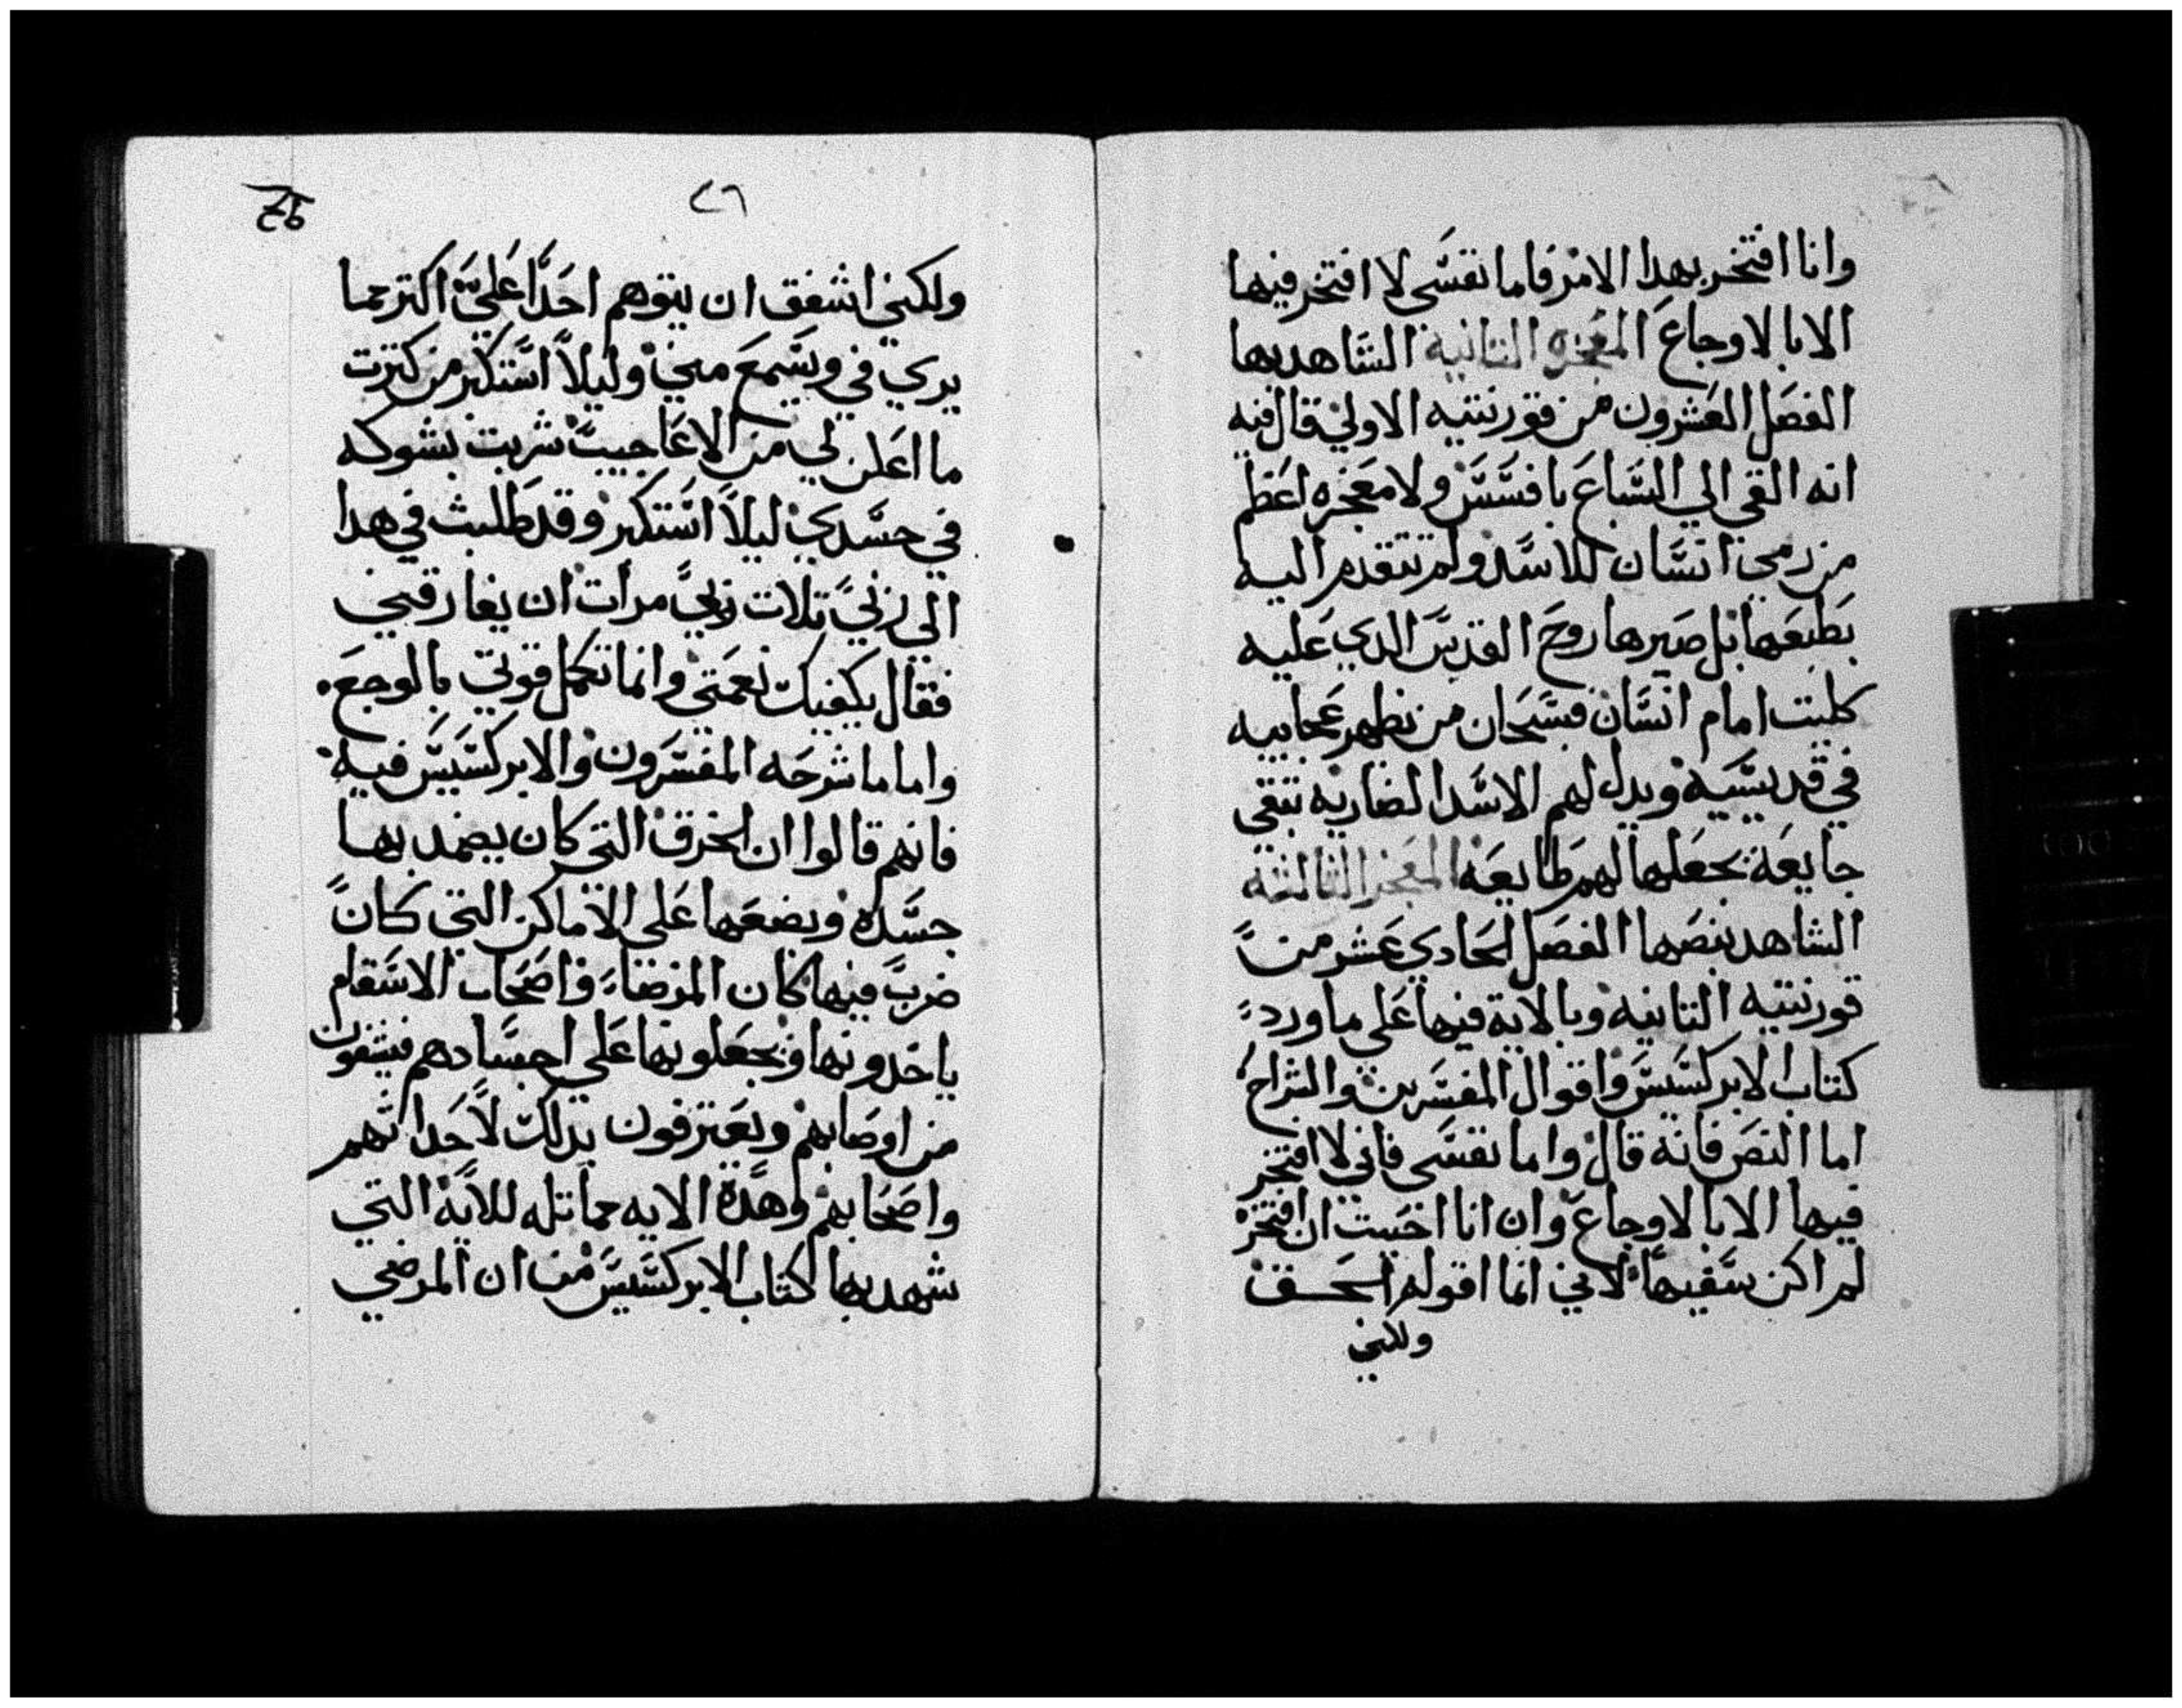 وانا افتخر بهدا الامر فاما نفسي لا افتخر فيها
الا بالاوجاع المعجزه التانية الشاهد بها
الفصل العشرون من قورنتيه الاولي قال فيه
انه القي الي السباع بافسس ولا معجزه اعظم
من رمي انسان للاسد ولم تتقدم اليه
بطبعها بل صيرها روح القدس الدي عليه
كلبت امام انسان فسبحان من يظهر عجاييه
في قديسيه ويدل لهم الاسد الضاريه تبقي
جايعة يجعلها لهم طايعه المعجز التالته
الشاهد بنصها الفصل الحادي عشر من
قورنتيه التانيه وبالاية فيها علي ما ورد
كتاب الابركسيس واقوال المفسرين والشراح
اما النص فانه قال واما نفسي فاني لا افتخر
فيها الا بالاوجاع وان انا احببت ان افتخر
لم اكن سفيها لاني انما اقول الحق
ولكني
٢٦
ولكني اشفق ان يتوهم احدا علي اكتر مما
يري في ويسمع مني وليلا استكبر من كترت
ما اعلن لي من الاعاجيب شربت بشوكه
في جسدي ليلا استكبر وقد طلبت في هدا
الي ربي تلات مرات ان يفارقني
فقال يكفيك نعمتي وانما تكمل قوتي بالوجع
واما ما شرحه المفسرون والابركسيس فيه
فانهم قالوا ان الخرق التي كان يضمد بها
جسده ويضعها علي الاماكن التي كان
ضرب فيها كان المرضاء واصحاب الاسقام
ياخدونها ويجعلونها علي اجسادهم فيشفون
من اوصابهم ويعترفون بدلك لاحداتهم
واصحابهم وهده الايه مماتله للاية التي
شهد بها كتاب الابركسيس من ان المرضي